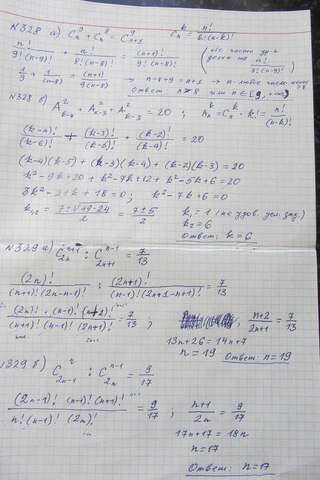 N328 а) C_n^9 + C_n^8 = C_{n+1}^9    C_n^k = n!/(k!(n-k)!)
n!/(9!(n-9)!) + n!/(8!(n-8)!) = (n+1)!/(9!(n-8)!)
1/9 + 1/(n-8) = (n+1)/(9(n-8)) → n-8+9 = n+1 → n-любое число
Ответ n ≥ 8 или n ∈ [9, +∞)
N328 б) A_{k-4}^2 + A_{k-3}^2 + A_{k-2}^2 = 20 ;
(k-4)!/(k-6)! + (k-3)!/(k-5)! + (k-2)!/(k-4)! = 20
(k-4)(k-5) + (k-3)(k-4) + (k-2)(k-3) = 20
k²-9k+20 + k²-7k+12 + k²-5k+6 = 20
3k²-21k+18=0 ; k²-7k+6=0
k_{1,2} = (7±√49-24)/2 = (7±5)/2    k_1 = 1 (не удов. усл. зад.)
k_2 = 6
Ответ: k=6
N329 а) C_{2n}^{n+1} : C_{2n+1}^{n-1} = 7/13
(2n)!/((n+1)!(2n-n-1)!) : (2n+1)!/((n-1)!(2n+1-n+1)!) = 7/13
(2n)! · (n-1)! (n+2)!/((n+1)! (n-1)! (2n+1)!) = 7/13 ; (n+2)/(2n+1) = 7/13
13n+26 = 14n+7
n = 19 Ответ n=19
329 б) C_{2n-1}^n : C_{2n}^{n-1} = 9/17
(2n-1)! (n-1)! (n+1)!/(n! (n-1)! (2n)!) = 9/17 ; (n+1)/2n = 9/17
17n+17 = 18n
n=17
Ответ: n=17